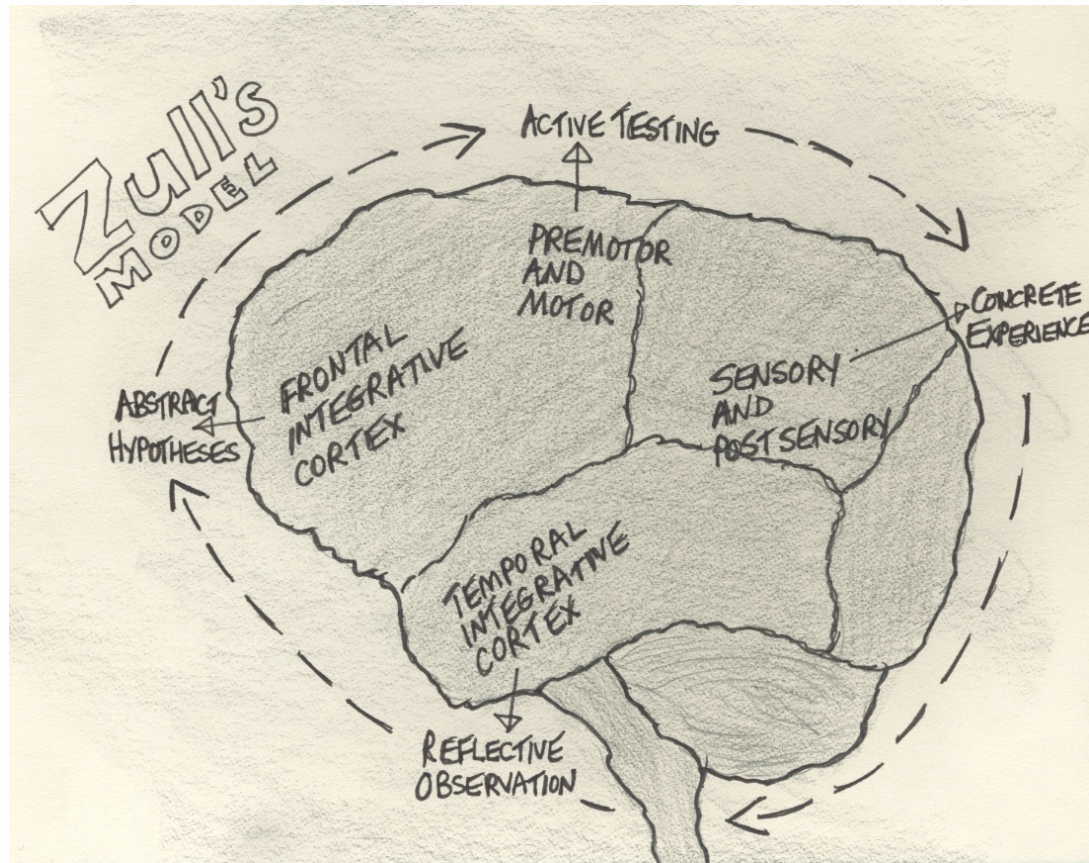 Zull's
MODEL
ACTIVE TESTING
PREMOTOR
AND
MOTOR
CONCRETE
EXPERIENCE
FRONTAL
INTEGRATIVE
CORTEX
SENSORY
AND
POSTSENSORY
ABSTRACT
HYPOTHESES
TEMPORAL
INTEGRATIVE
CORTEX
REFLECTIVE
OBSERVATION